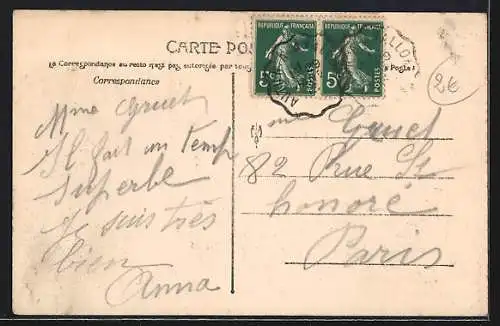 CARTE POS
La Correspondance au recto n'est pas autorisée par tous
Poste)
Correspondance
REPUBLIQUE FRANÇAISE
REPUBLIQUE FRANÇAISE
5c
POSTES
5c
POSTES
2€
Mme Gruet
Il fait un Temp
Superbe
Je suis très
bien
Anna
me Gruet
82 Rue St
honoré
Paris